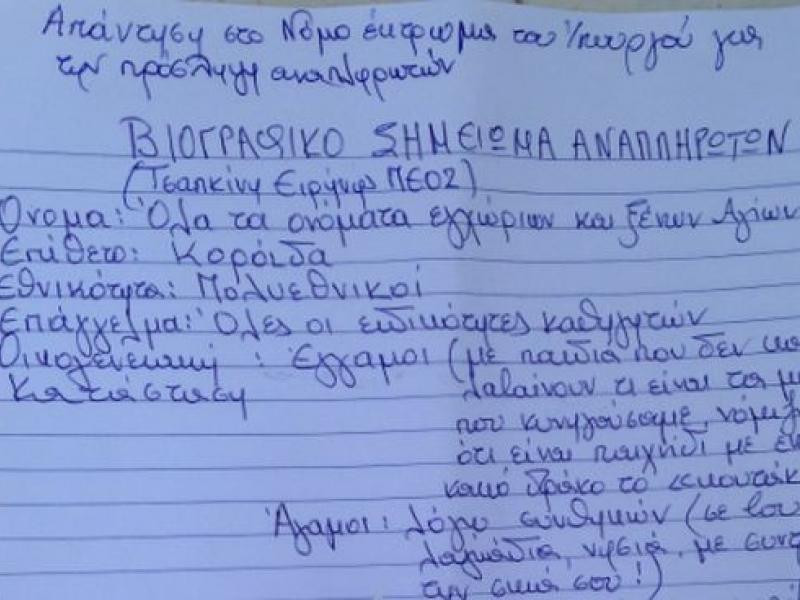 Απάντηση στο Νόμο έκτρωμα του Υπουργού για
την πρόσληψη αναπληρωτών
ΒΙΟΓΡΑΦΙΚΟ ΣΗΜΕΙΩΜΑ ΑΝΑΠΛΗΡΩΤΩΝ
(Τσαπκίνη Ειρήνης ΠΕ02)
Όνομα: Όλα τα ονόματα εγχώριων και ξένων Αγίων
Επίθετο: Κορόιδα
Εθνικότητα: Πολυεθνικοί
Επάγγελμα: Όλες οι ειδικότητες καθηγητών
Οικογενειακή : Έγγαμοι (με παιδιά που δεν
Κατάσταση λαβαίνουν τι είναι τα
που κυνηγούσαμε,
ότι είναι παιχνίδι με
κακό δράκο το
Άγαμοι: λόγω συνθηκών (σε
λαγκάδια, νησιά, με
την σκιά σου!)